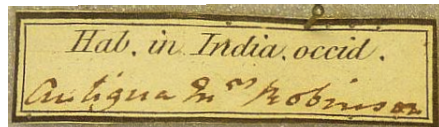 Hab. in India. occid.
Antigua Mrs Robinson